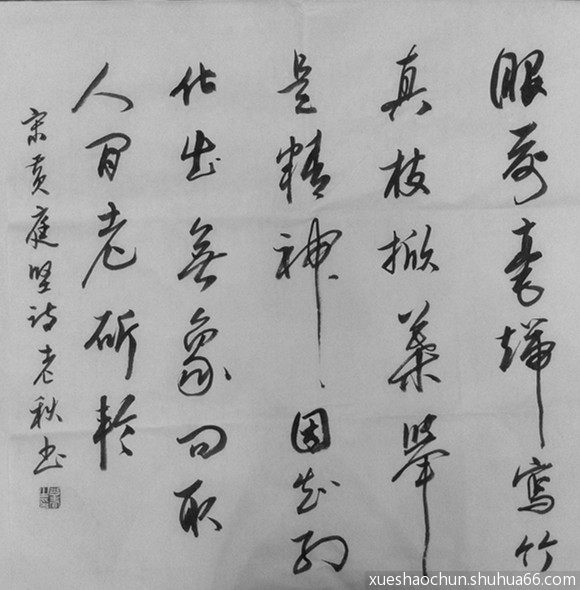 眼毫端寫竹
真枝掀葉舉
是精神因知幻
化出無象問取
人間老斫輪
宋黃庭堅詩老秋書
xueshaochun.shuhua66.com